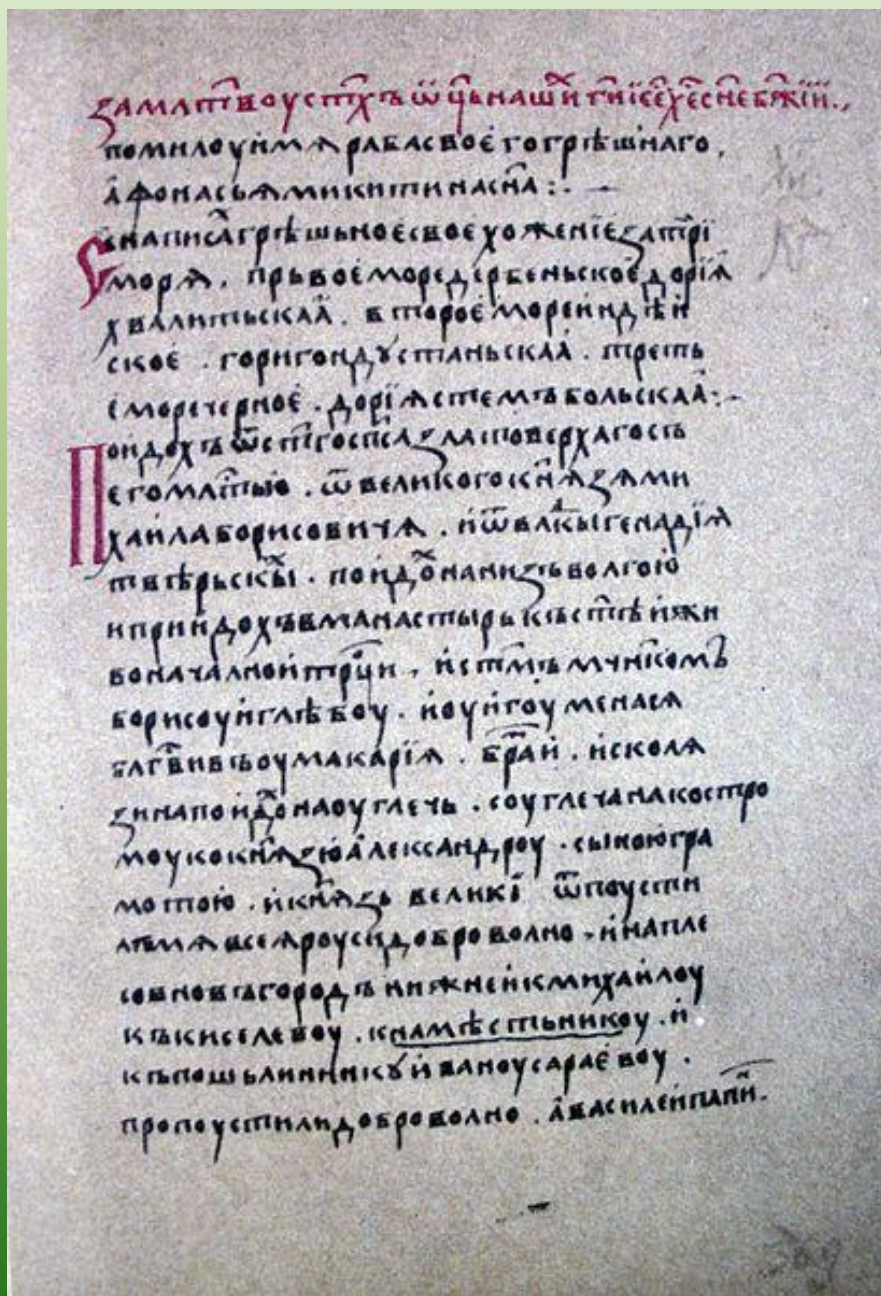 замл҃твоуст҃хъѿц҃ьнашⷯиг҃иіс҃ех҃ес҃неб҃жїи.,
помилоуймѧрабасвоегогрѣшнаго.
афонасьѧмикитинас҃на:.—
Сенаписⷶгрѣшьноесвоехоженїеꙁатрї
морѧ.прьвоеморедербеньскоедорїа
хвалитьскаа.второеморейндѣй
ское.горигондꙋстаньскаа.треть
еморечерное.дорїастемъбольскаа:-
Поидохъѿст҃госпⷭ҇аꙁлатоверхагосъ
егомл҃тью.ѿвеликогокн҃ѧꙁѧми
хаилаборисовичѧ.иѿвлⷣкыгенадїѧ
твѣрьскⷯы.поидⷯонаниꙁъволгою
иприидохъвманастырькъст҃ѣйжи
воначалнойтр҃ци.ист҃мъмч҃нкомъ
борисоуиглѣбоу.иоуигоуменасѧ
блг҃вивъоумакарїѧ.бр҃аи.исколѧ
ꙁинапоидⷯонаоуглечь.соуглечанакостро
моукокн҃ѧꙁюалександроу.сыноюгра
мотою.икн҃ѧꙁь великї ѿпоусти
лъмѧвсеѧроусидоброволно.инапле
совновъгородънижнейкмихайлоу
къкиселевоу.кнамѣстьникоу.и
къпошьлинникꙋиваноусараевоу.
пропоустилидоброволно.авасилейпапин.